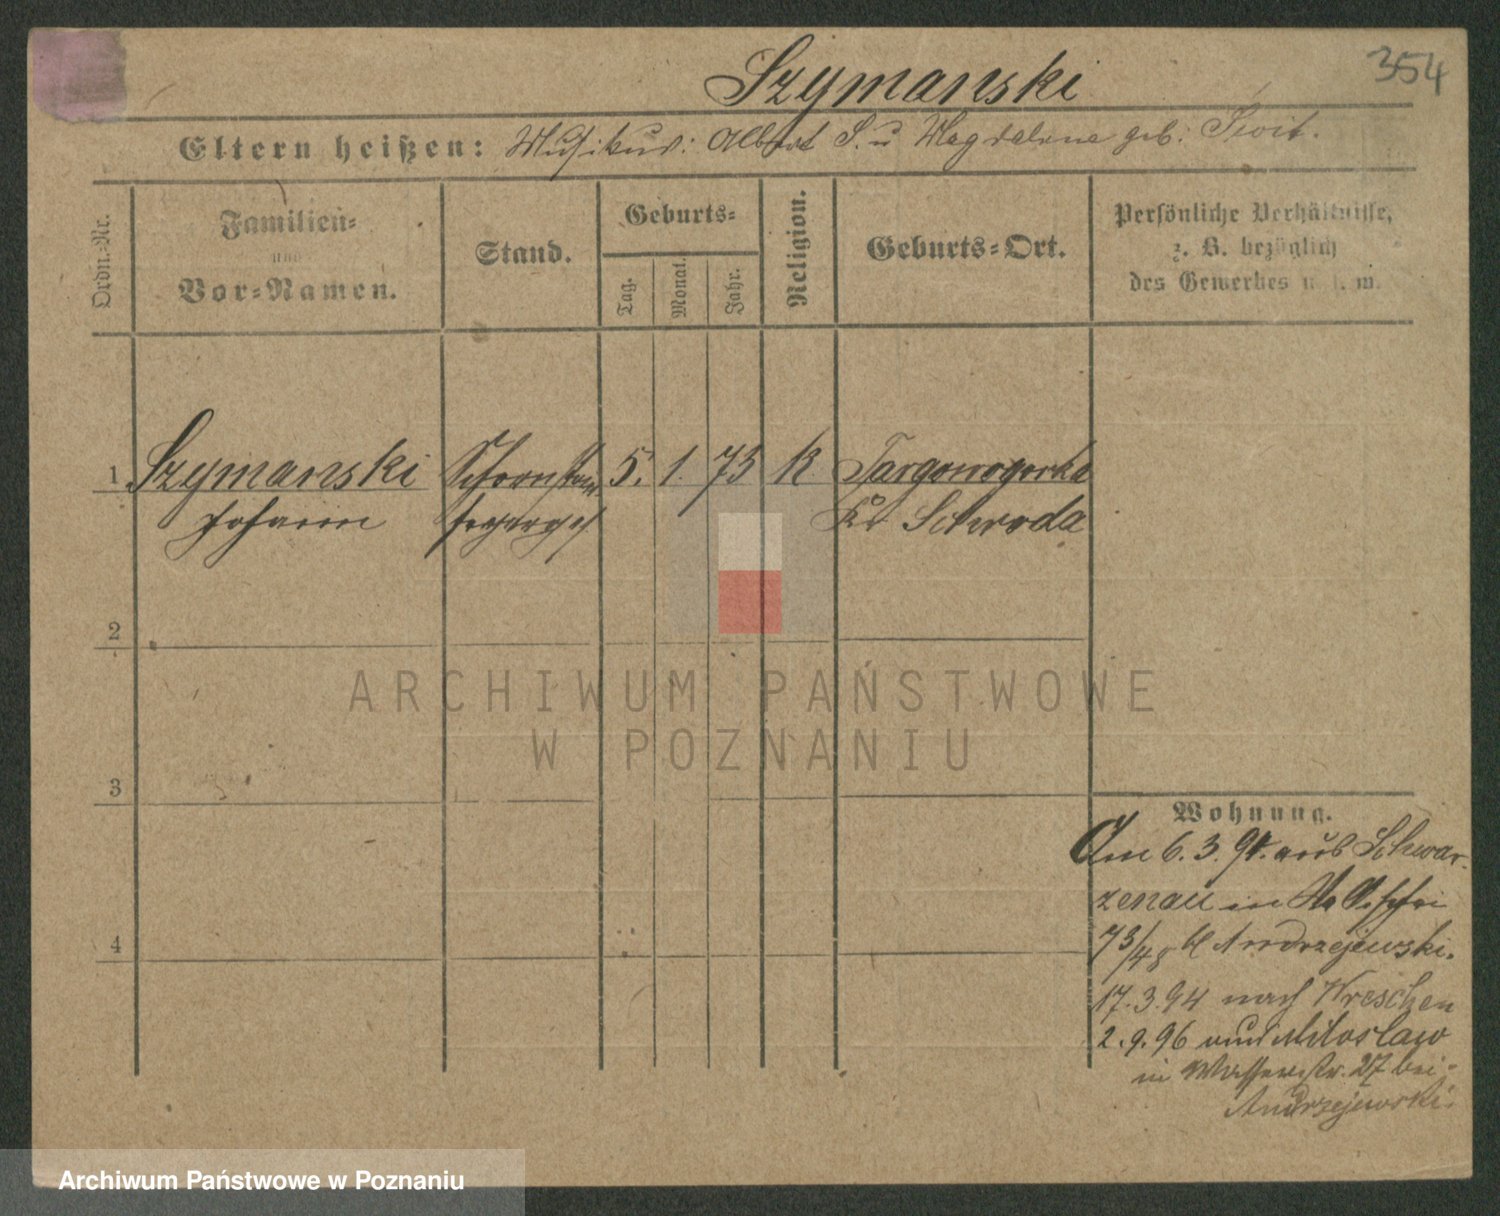 Szymanski
354
Eltern heißen: Musikus: Albert S. u Magdalena geb: Swit.
Ordn.-Nr.
Familien-
und
Vor-Namen.
Stand.
Geburts-
Tag.
Monat.
Jahr.
Religion.
Geburts-Ort.
Persönliche Verhältnisse,
z. B. bezüglich
des Gewerbes u. s. w.
1 Szymanski Schornstein 5. 1. 73 K Targowogorka
Johann fegerges Kr Schroda
2
3
4
Wohnung.
Am 6. 3. 94. aus Schwar-
zenau in
73/48 bl Andrzejewski.
17. 3. 94 nach Wreschen
2. 9. 96 aus Miloslaw
in Wasserstr. 27 bei
Andrzejewski.
ARCHIWUM PAŃSTWOWE
W POZNANIU
Archiwum Państwowe w Poznaniu